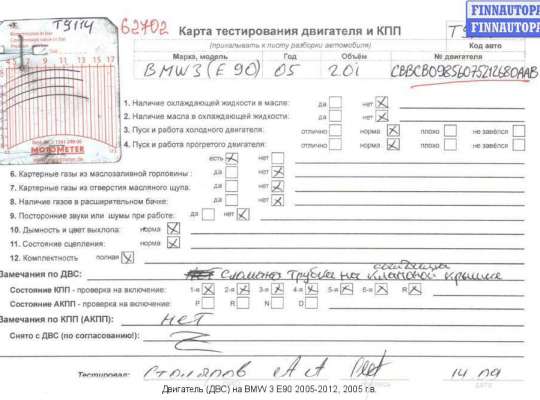 T9114
62702
Карта тестирования двигателя и КПП
(прикалывать к листу разборки автомобиля)
FINNAUTOPA
FINNAUTOPA
Код авто
Марка, модель Год Объём № двигателя
BMW 3 (E90) 05 2.0i CBBCB0985607S212680AAB
MOTOMETER
1. Наличие охлаждающей жидкости в масле: да нет
2. Наличие масла в охлаждающей жидкости. да нет
3. Пуск и работа холодного двигателя: отлично норма плохо не завёлся
4. Пуск и работа прогретого двигателя: отлично норма плохо не завёлся
есть нет
6. Картерные газы из маслозаливной горловины: да нет
7. Картерные газы из отверстия масляного щупа: да нет
8. Наличие газов в расширительном бачке: да нет
9. Посторонние звуки или шумы при работе: да нет
10. Дымность и цвет выхлопа: норма
11. Состояние сцепления: норма
12. Комплектность полная
Замечания по ДВС: Сломана трубка на клапаной крышке
Состояние КПП - проверка на включение: 1-я 2-я 3-я 4-я 5-я 6-я R
Состояние АКПП - проверка на включение: P R N D
Замечания по КПП (АКПП): нет
Снято с ДВС (по согласованию!):
Тестировал: Столяров А А 14 09
дата
Двигатель (ДВС) на BMW 3 E90 2005-2012, 2005 г.в.